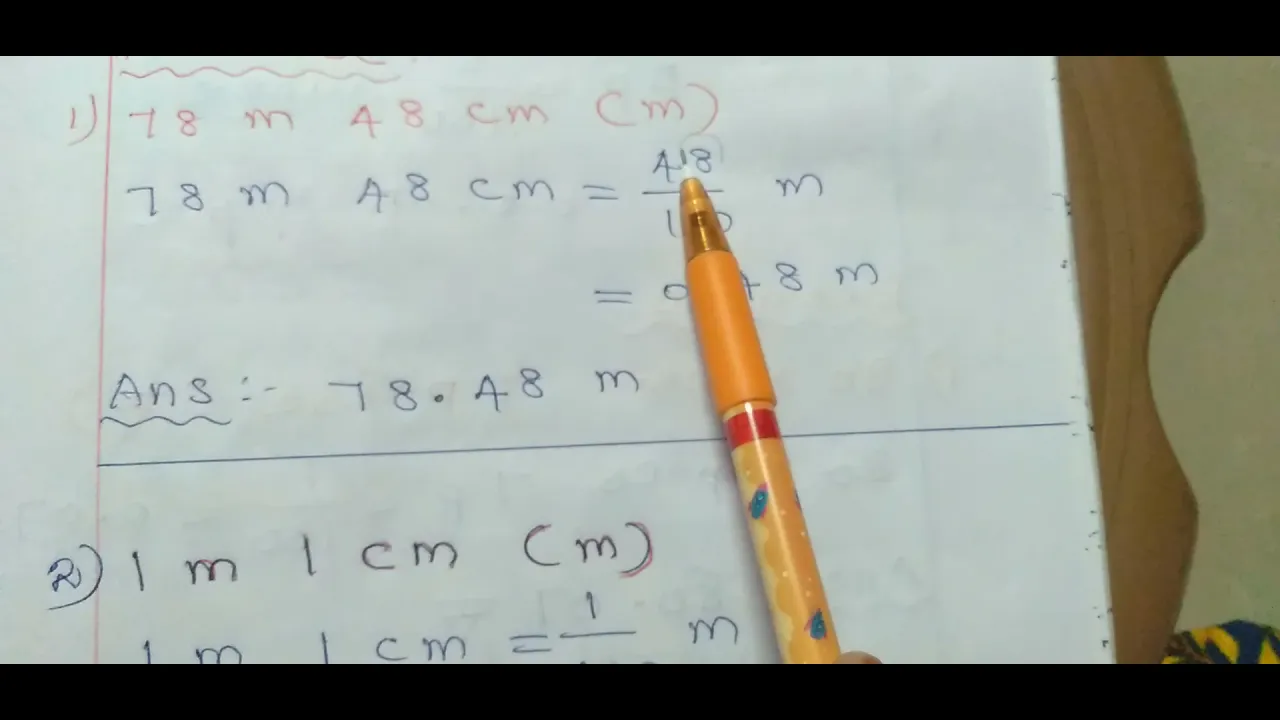 1) 78 m 48 cm (m)
78 m 48 cm = 48 m
= 8 m
Ans :- 78.48 m
2) 1 m 1 cm (m)
1 m 1 cm = 1 m